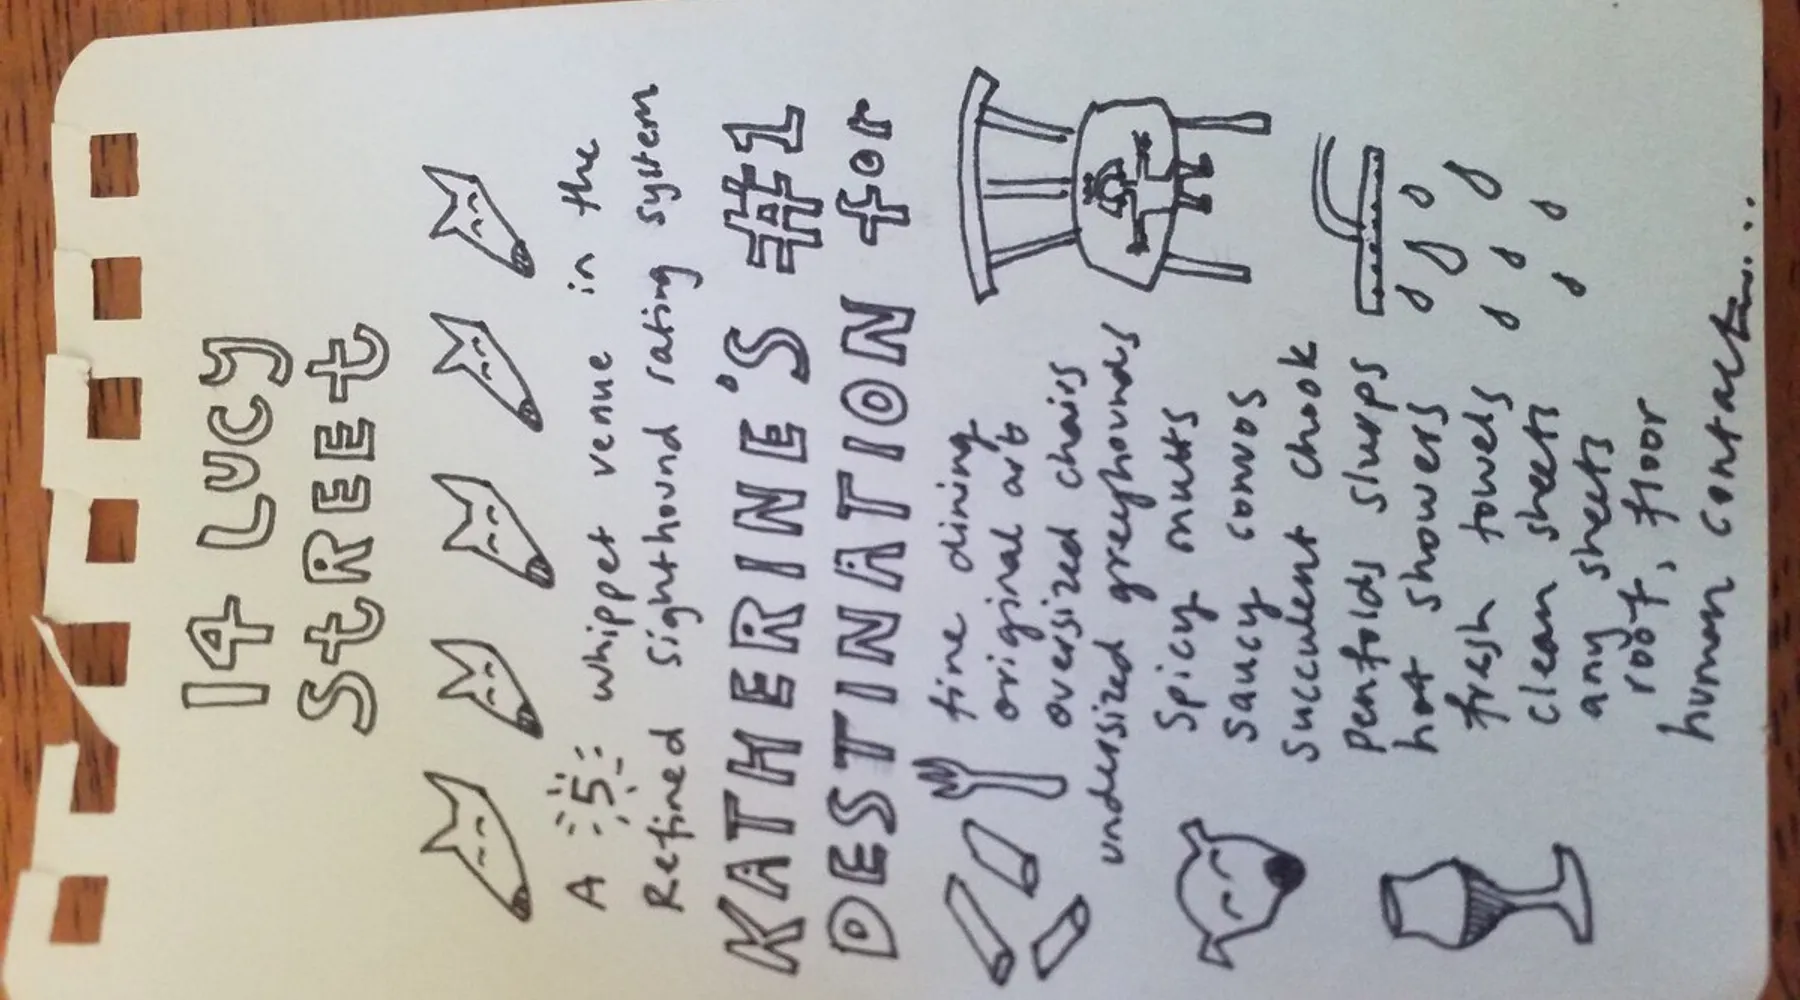 14 LUCY
StREEt
A 5 whippet venue in the
Refined sighthound rating system
KATHERINE'S #1
DESTINATION for
fine dining
original art
oversized chairs
undersized greyhounds
spicy mutts
saucy convos
succulent chook
penfolds slurps
hot showers
fresh towels
clean sheets
any sheets
roof, floor
human contact....